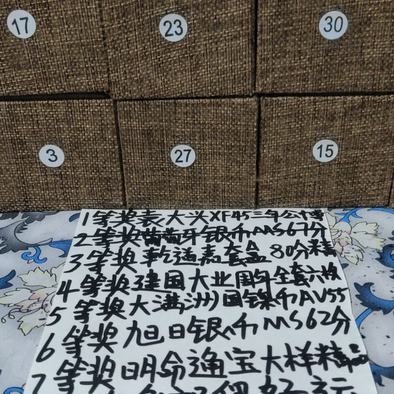 17 23 30
3 27 15
1等奖袁大头XF45三年公博
2等奖葡萄牙银币MS67分
3等奖乾隆 套盒80分精
4等奖建国大业周年全套六枚
5等奖大满洲国镍币AU55
6等奖旭日银币MS62分
7等奖明命通宝大样精品